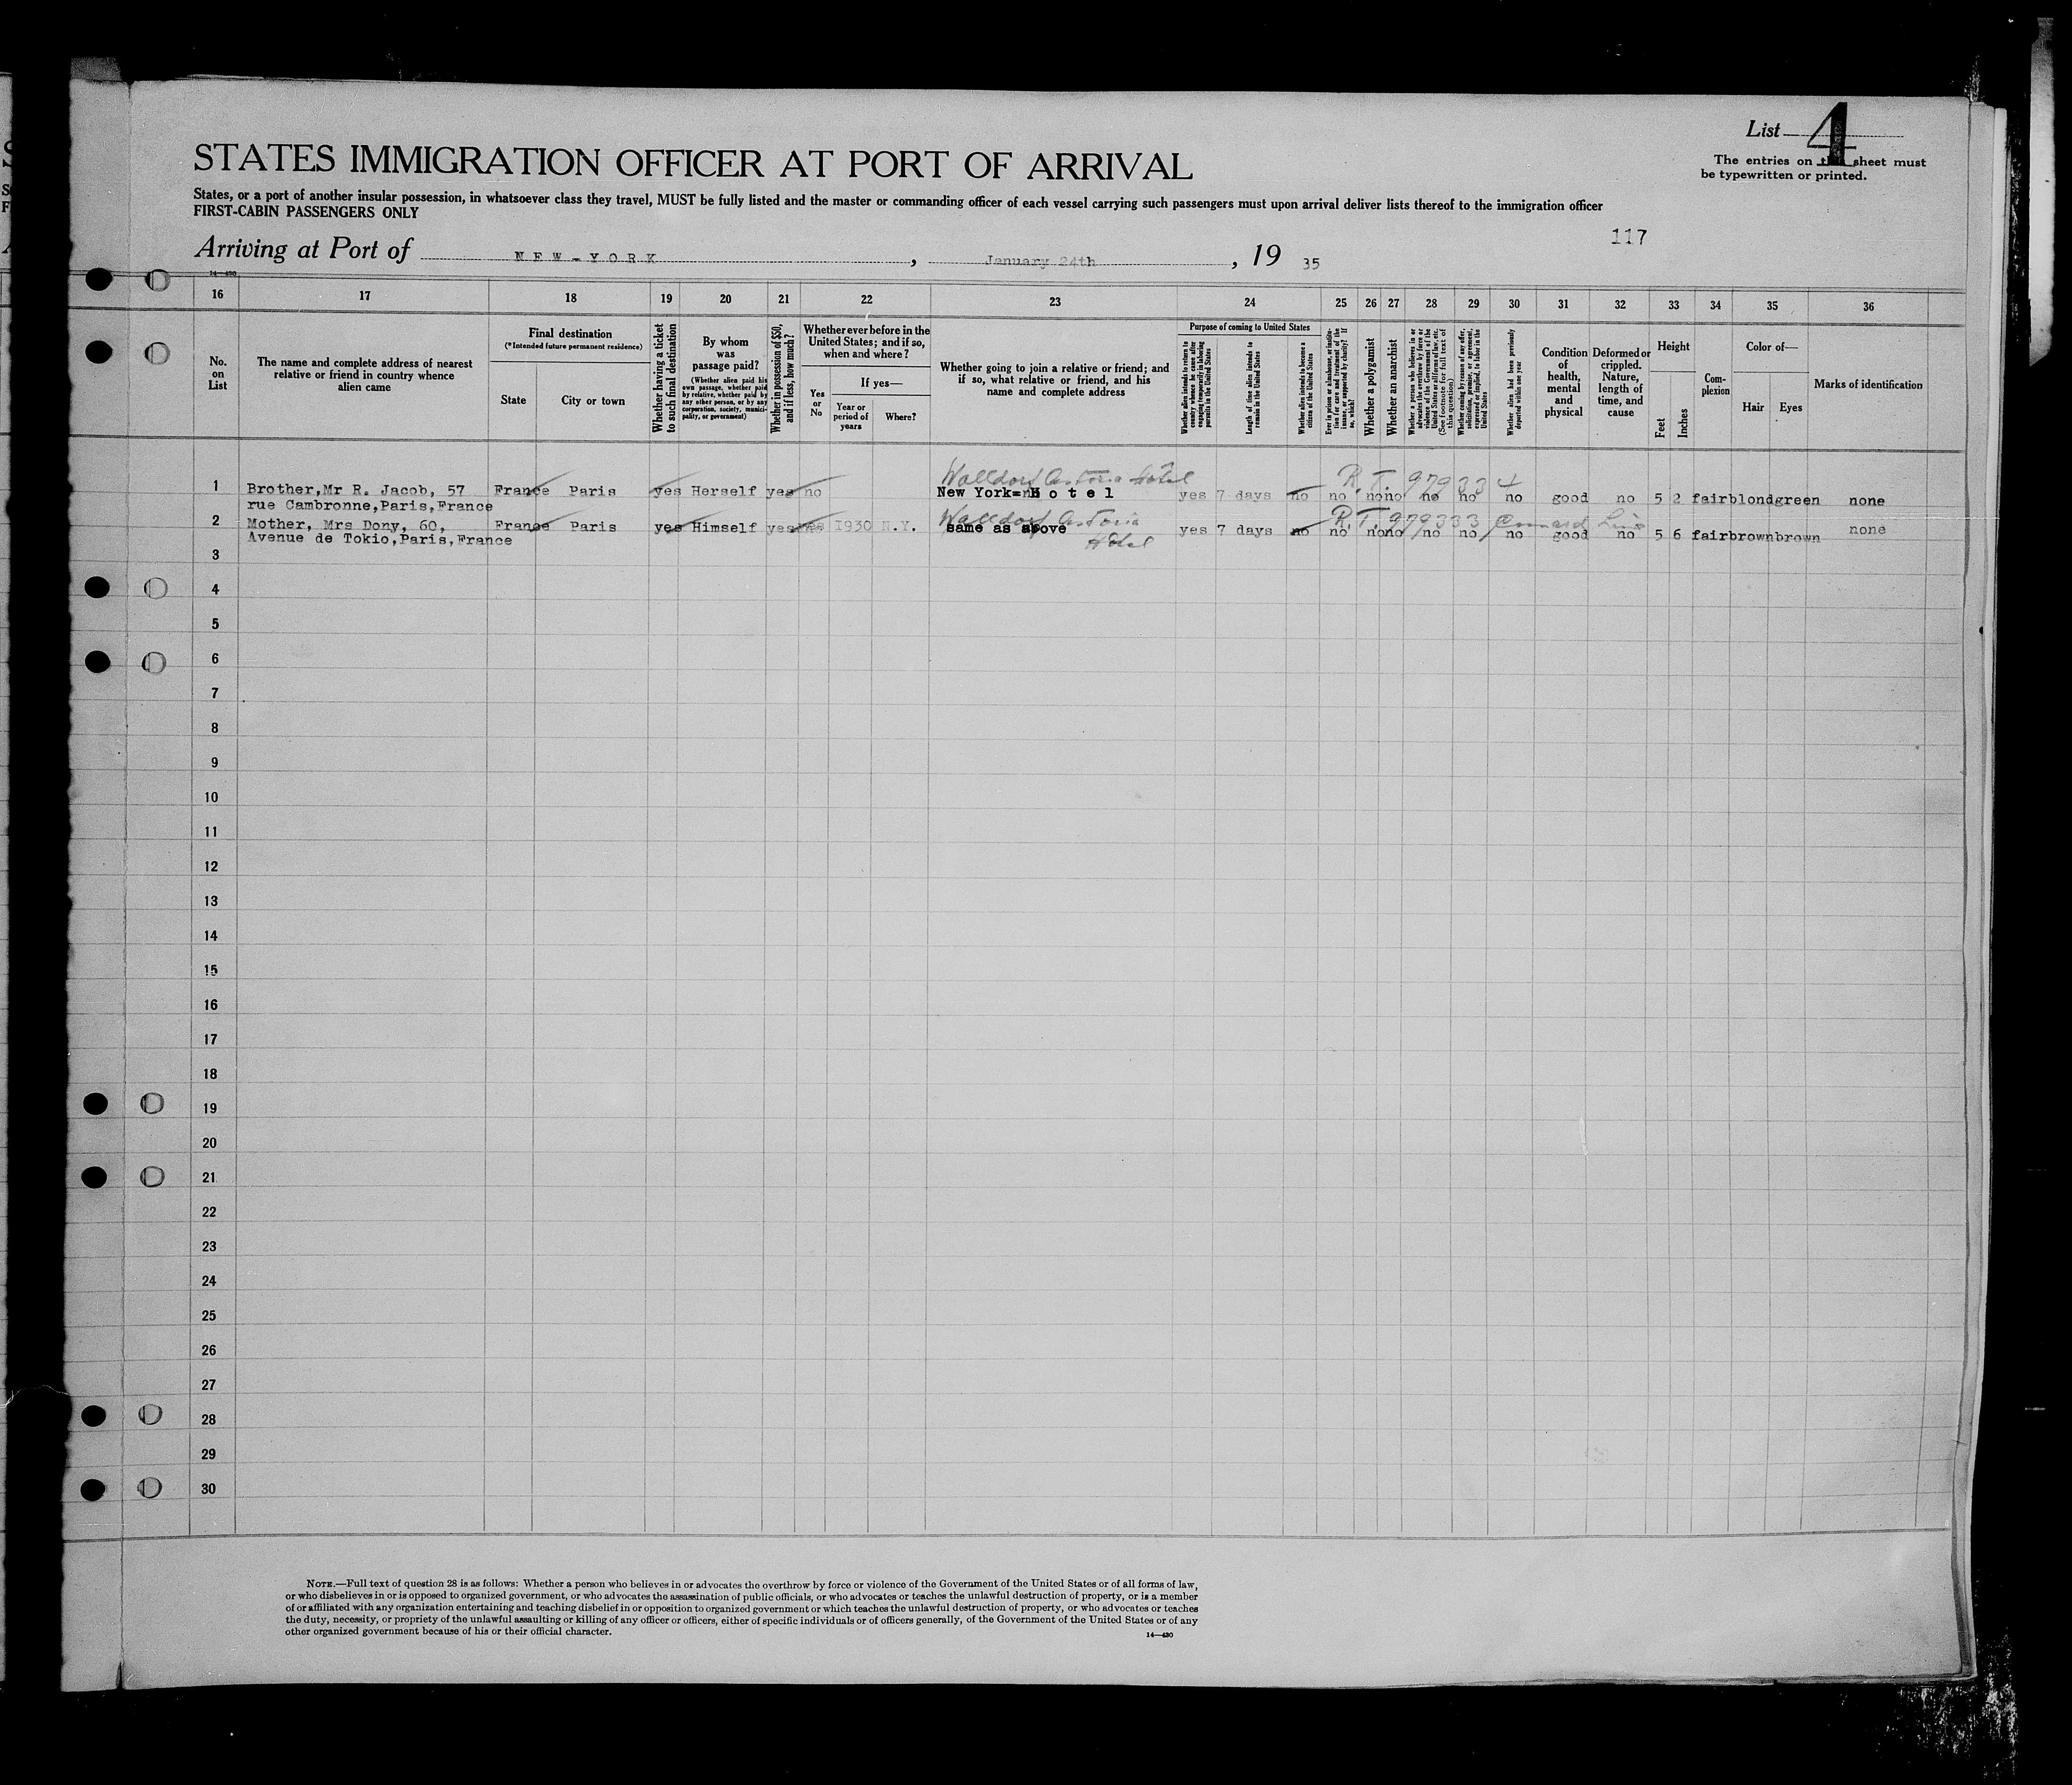 List 4
The entries on sheet must
be typewritten or printed.
STATES IMMIGRATION OFFICER AT PORT OF ARRIVAL
States, or a port of another insular possession, in whatsoever class they travel, MUST be fully listed and the master or commanding officer of each vessel carrying such passengers must upon arrival deliver lists thereof to the immigration officer
FIRST-CABIN PASSENGERS ONLY
117
Arriving at Port of NEW-YORK, January 24th, 19 35
14—430
16 17 18 19 20 21 22 23 24 25 26 27 28 29 30 31 32 33 34 35 36
No. on List
The name and complete address of nearest relative or friend in country whence alien came
Final destination
(*Intended future permanent residence)
State
City or town
Whether having a ticket to such final destination
By whom was passage paid?
(Whether alien paid his own passage, whether paid by relative, whether paid by any other person, or by any corporation, society, municipality, or government)
Whether in possession of $50, and if less, how much?
Whether ever before in the United States; and if so, when and where?
Yes or No
If yes—
Year or period of years
Where?
Whether going to join a relative or friend; and if so, what relative or friend, and his name and complete address
Purpose of coming to United States
Whether alien intends to return to country whence he came after engaging temporarily in laboring pursuits in the United States
Length of time alien intends to remain in the United States
Whether alien intends to become a citizen of the United States
Ever in prison or almshouse, or institution for care and treatment of the insane, or supported by charity? If so, which?
Whether a polygamist
Whether an anarchist
Whether a person who believes in or advocates the overthrow by force or violence of the Government of the United States or all forms of law, etc. (See footnote for full text of this question)
Whether coming by reason of any offer, solicitation, promise, or agreement, expressed or implied, to labor in the United States
Whether alien had been previously deported within one year
Condition of health, mental and physical
Deformed or crippled. Nature, length of time, and cause
Height
Feet
Inches
Complexion
Color of—
Hair
Eyes
Marks of identification
Walldorf Astoria Hôtel R.T. 979334
1 Brother,Mr R. Jacob, 57 France Paris yes Herself yes no New York= Hotel yes 7 days no no no no no no no good no 5 2 fair blond green none
rue Cambronne,Paris,France
Walldorf Astoria R.T. 979333 Cunard Line
2 Mother, Mrs Dony, 60, France Paris yes Himself yes yes 1930 N.Y. same as above yes 7 days no no no no no no no good no 5 6 fair brown brown none
Avenue de Tokio,Paris,France Hôtel
3
4
5
6
7
8
9
10
11
12
13
14
15
16
17
18
19
20
21
22
23
24
25
26
27
28
29
30
NOTE.—Full text of question 28 is as follows: Whether a person who believes in or advocates the overthrow by force or violence of the Government of the United States or of all forms of law,
or who disbelieves in or is opposed to organized government, or who advocates the assassination of public officials, or who advocates or teaches the unlawful destruction of property, or is a member
of or affiliated with any organization entertaining and teaching disbelief in or opposition to organized government or which teaches the unlawful destruction of property, or who advocates or teaches
the duty, necessity, or propriety of the unlawful assaulting or killing of any officer or officers, either of specific individuals or of officers generally, of the Government of the United States or of any
other organized government because of his or their official character.
14—430